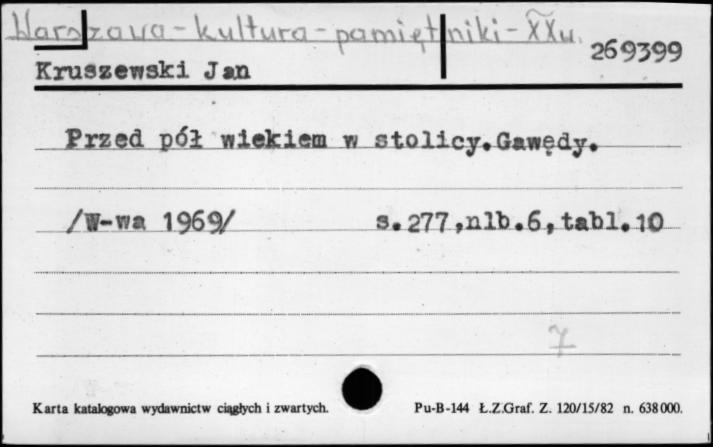 Warszawa - kultura - pamiętniki - XX w.
269399
Kruszewski Jan
Przed pół wiekiem w stolicy.Gawędy.
/W-wa 1969/ s.277,nlb.6,tabl.10
7
Karta katalogowa wydawnictw ciągłych i zwartych. Pu-B-144 Ł.Z.Graf. Z. 120/15/82 n. 638000.